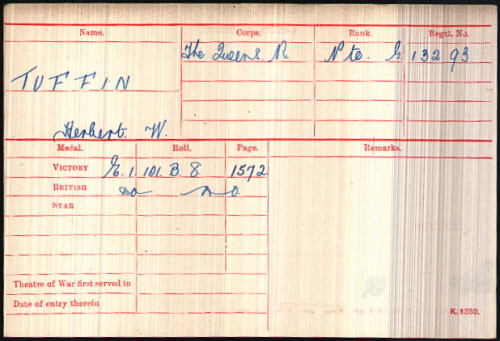 Name. Corps. Rank. Regtl. No.
The Queens. R Pte. G. 13293
TUFFIN
Herbert. W.
Medal. Roll. Page. Remarks.
VICTORY E. 1. 101. B. 8 1572
BRITISH do do
STAR
Theatre of War first served in
Date of entry therein
K. 1380.